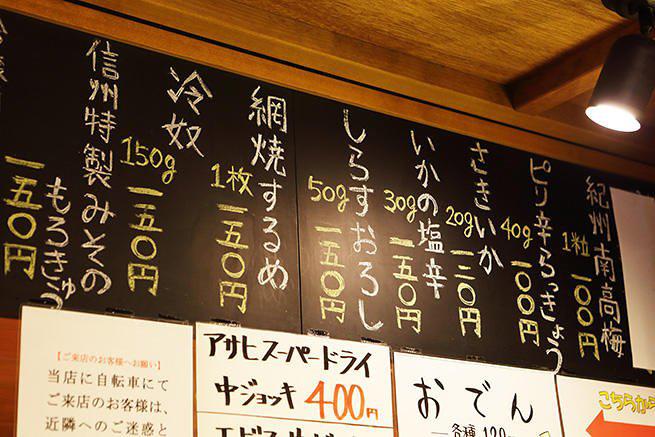 紀州南高梅
1粒 一〇〇円
ピリ辛らっきょう
40g 一〇〇円
さきいか
20g 一二〇円
いかの塩辛
30g 一五〇円
しらすおろし
50g 一五〇円
網焼するめ
1枚 一五〇円
冷奴
150g 一五〇円
信州特製みその
もろきゅう
一五〇円
【ご来店のお客様へお願い】
当店に自転車にて
ご来店のお客様は、
近隣へのご迷惑と
アサヒスーパードライ
中ジョッキ 400円
おでん
各種120
こちらから